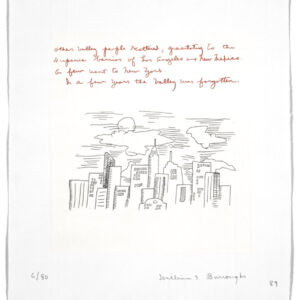 Other Valley people scattered, gravitating to the
of Los Angeles and New Mexico
A few went to New York
In a few years the Valley was forgotten.
6/90
William S Burroughs
89